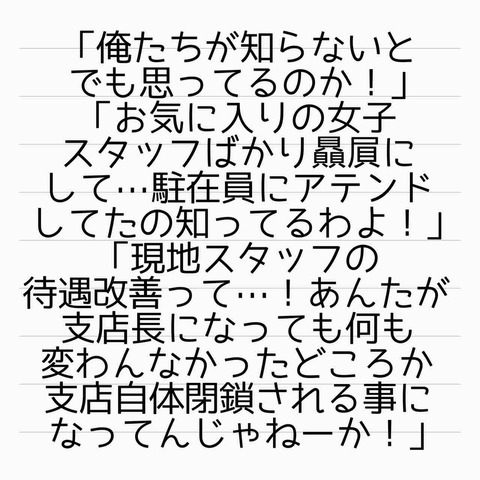 「俺たちが知らないと
でも思ってるのか！」
「お気に入りの女子
スタッフばかり贔屓に
して…駐在員にアテンド
してたの知ってるわよ！」
「現地スタッフの
待遇改善って…！あんたが
支店長になっても何も
変わんなかったどころか
支店自体閉鎖される事に
なってんじゃねーか！」